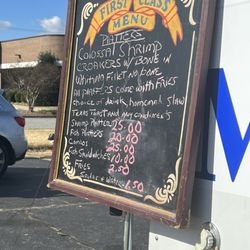 FIRST CLASS
MENU
PLATTERS
Colossal Shrimp
CROAKERS w/ BONE IN
Whiting Fillet NO bone
All PlATTERS come with FRIES
choice of drink, homemade slaw
Texas Toast and any condiments
Shrimp Platters 25.00
Fish Platters 20.00
Combos 25.00
Fish Sandwiches 10.00
FRIES 2.50
Sodas & Waters 1.50